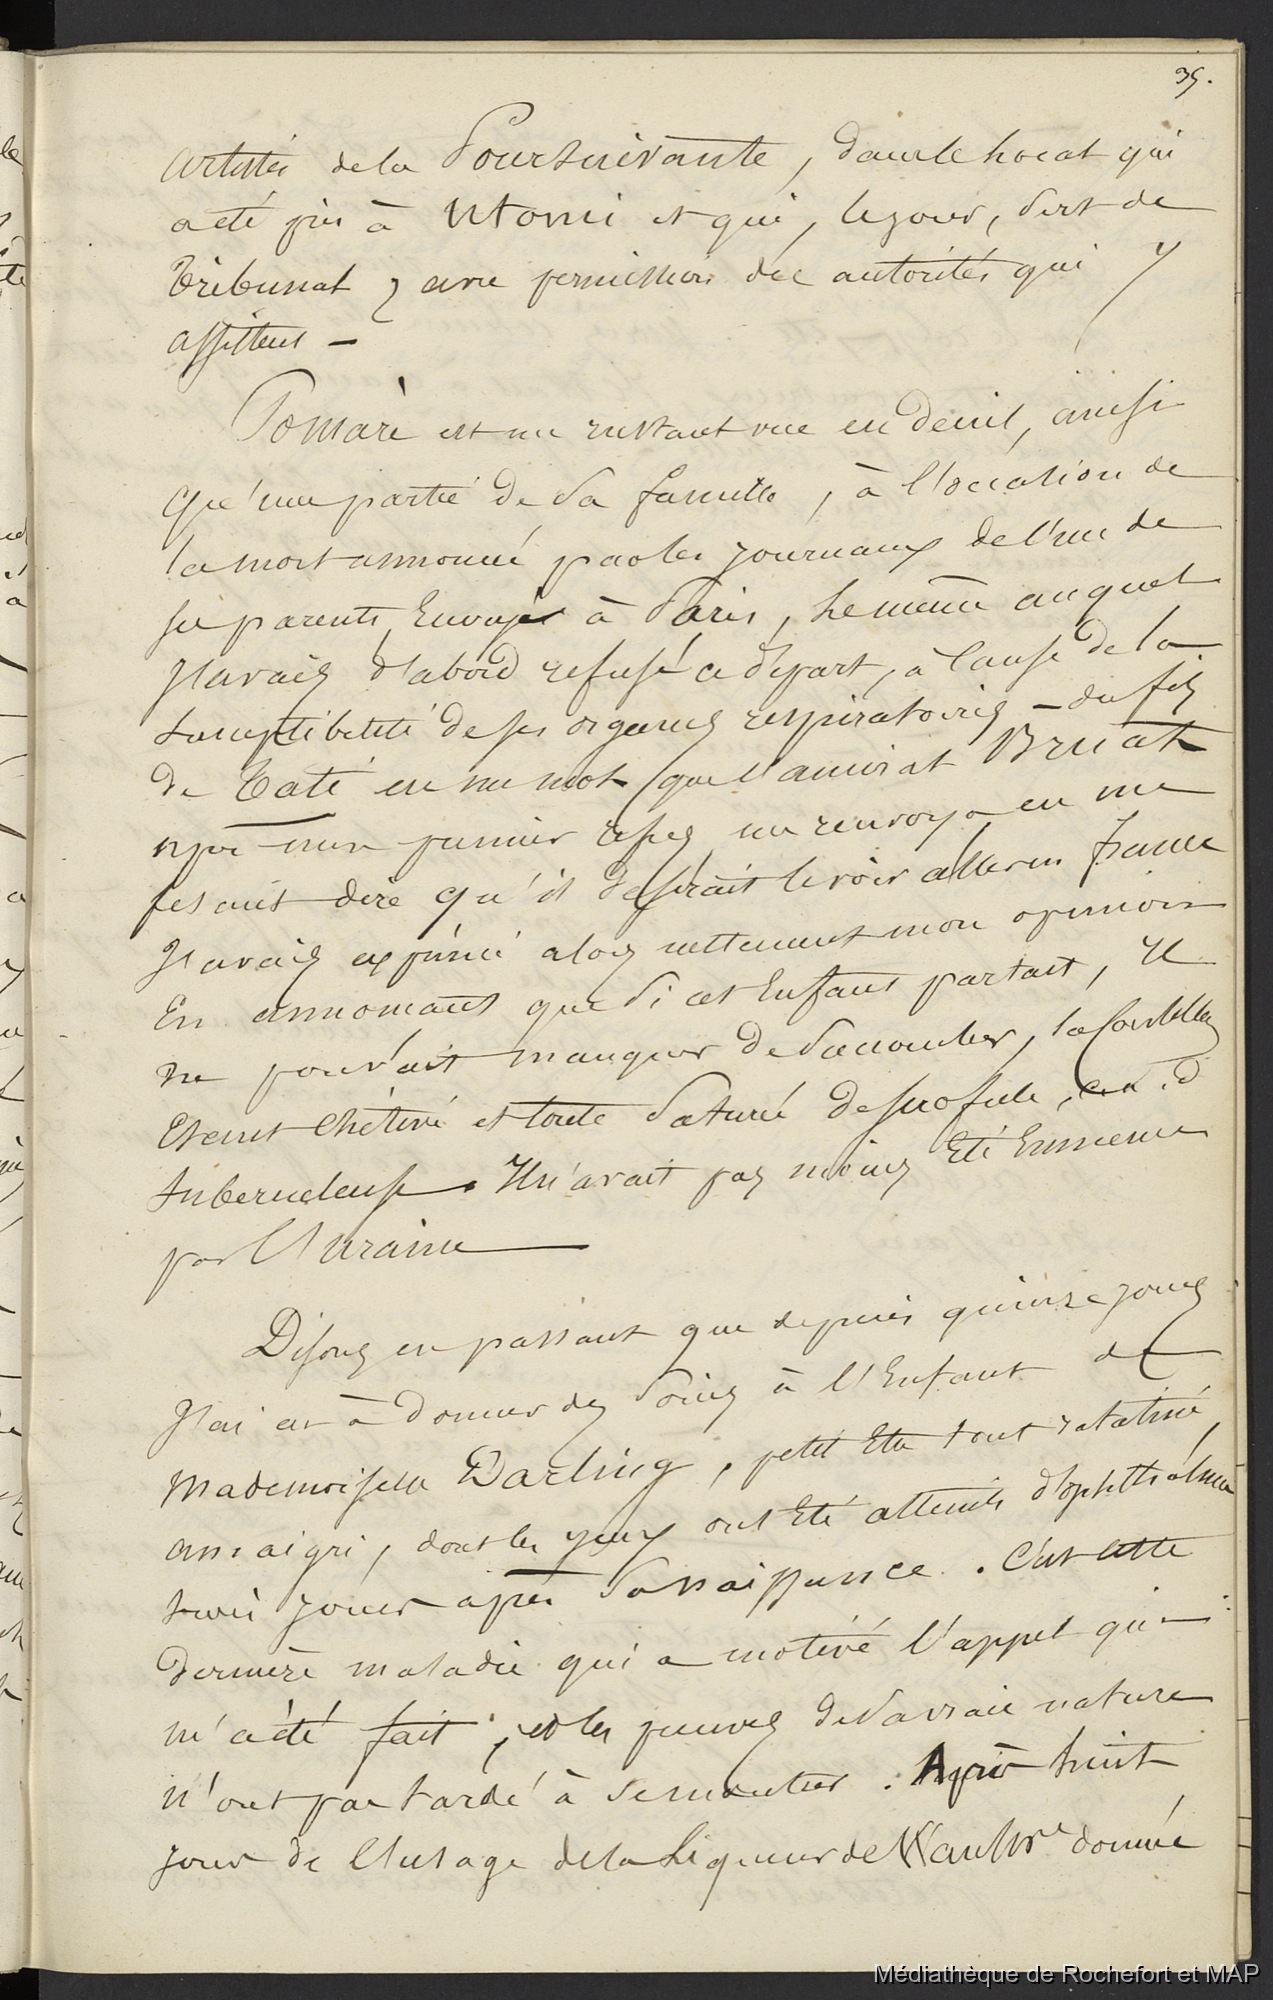 35.
artistes de la Poursuivante, dans le local qui
a été pris à Utomi et qui, le jour, sert de
Tribunal, avec permission des autorités qui y
assistent —
Pomaré est un instant vue en deuil, ainsi
qu'une partie de sa famille, à l'occasion de
la mort annoncé par les journaux de l'un de
ses parents, Envoyé à Paris, le même auquel
J'avais d'abord refusé ce départ, à Cause de la
susceptibilité de ses organes respiratoires — du fils
de Taté en un mot que l'amiral Bruat
après mon premier refus me renvoya en me
fesant dire qu'il désirait le voir aller en france
J'avais exprimé alors nettement mon opinion
En annonçant que Si cet Enfant partait, Il
ne pouvait manquer de Succomber,
Etant Chétive et toute Saturée de scrofule, c. a. d
tuberculeuse. Il n'avait pas moins Eté Emmené
par l'Uranie
Disons en passant que depuis quinze jours
J'ai eu à donner des Soins à l'Enfant de
Mademoiselle Darling, petit Etre tout ratatiné,
amaigri, dont les yeux ont Eté atteints d'ophthalmie
trois jours après Sa naissance. C'est cette
dernière maladie qui a motivé l'appel qui
m'a été fait, et les preuves de Sa vraie nature
n'ont pas tardé à Se montrer. Après huit
jours de l'Usage de la Liqueur de donnée
Médiathèque de Rochefort et MAP